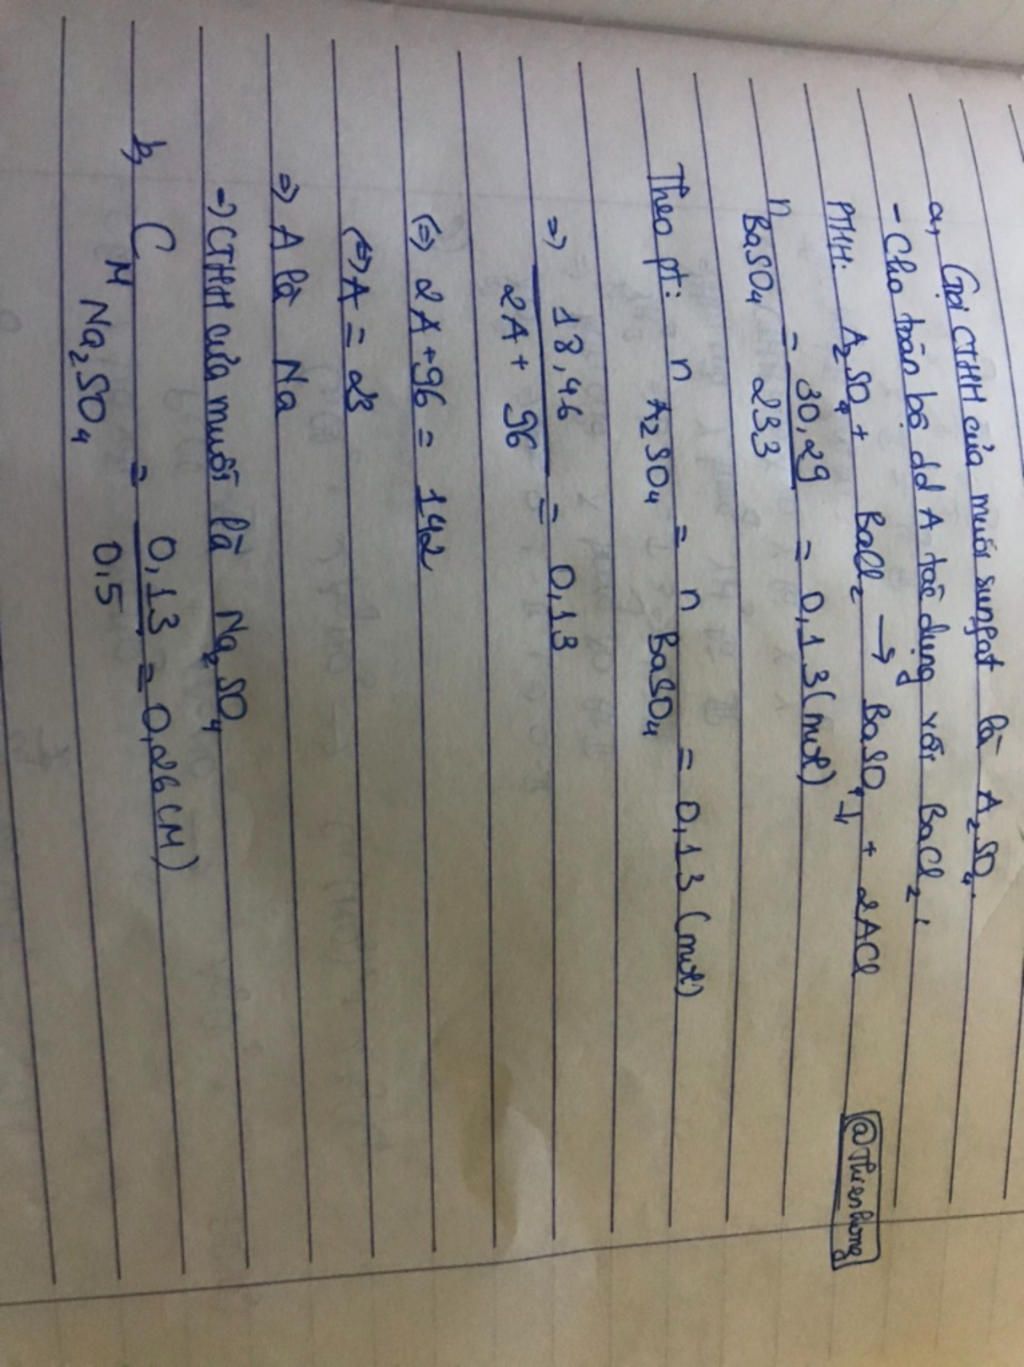 a, Gọi CTHH của muối sunfat là A₂SO₄.
- Cho toàn bộ dd A tác dụng với BaCl₂:
PTHH: A₂SO₄ + BaCl₂ → BaSO₄↓ + 2ACl
@Thienhuong
n BaSO₄ = 30,29 / 233 = 0,13 (mol)
Theo pt: n A₂SO₄ = n BaSO₄ = 0,13 (mol)
=> 18,46 / 2A + 96 = 0,13
(=) 2A + 96 = 142
(=) A = 23
=) A là Na
-> CTHH của muối là Na₂SO₄
b, C M Na₂SO₄ = 0,13 / 0,5 = 0,26 (M)